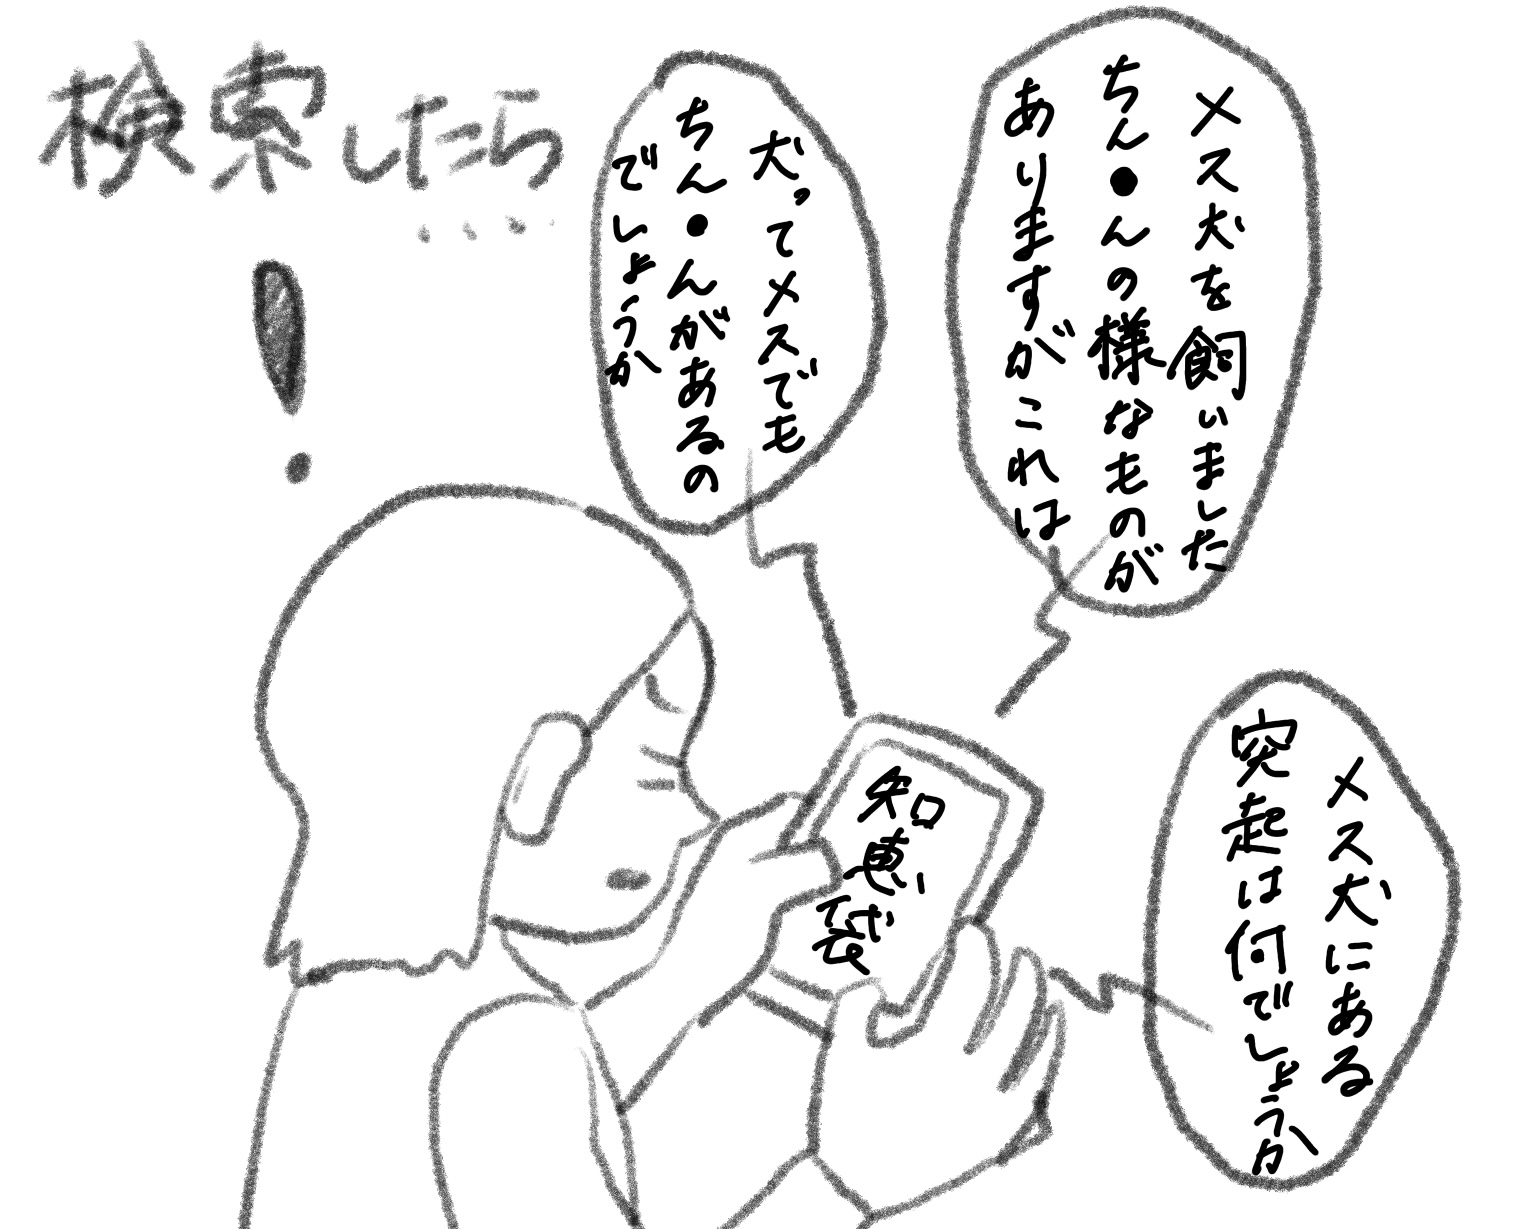 検索したら
・・・・
！
メス犬を飼いました
ちん●んの様なものが
ありますがこれは
犬ってメスでも
ちん●んがあるの
でしょうか
メス犬にある
突起は何でしょうか
知恵袋